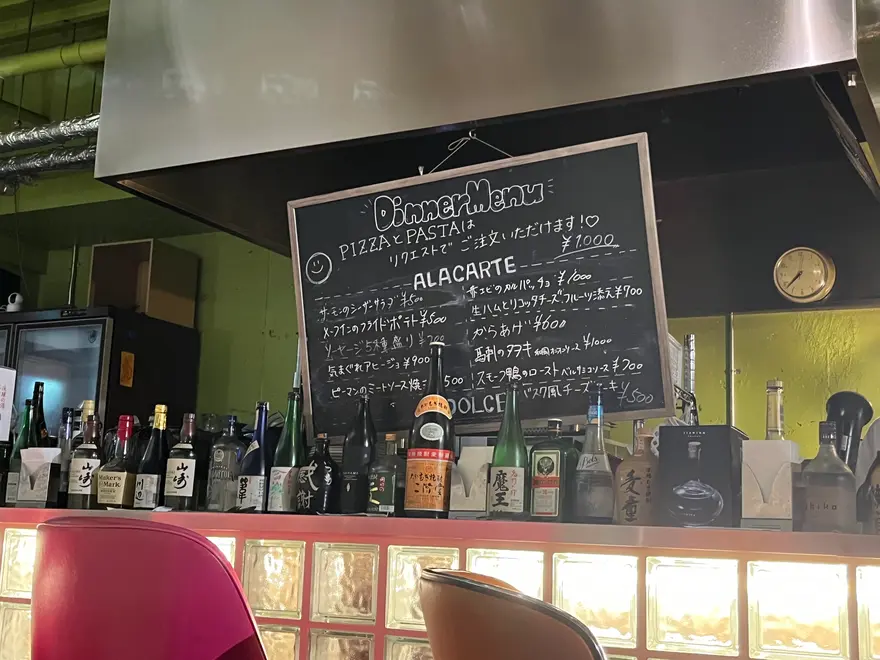 Dinner Menu
PIZZAとPASTAは
リクエストで ご注文いただけます!♡
¥1000
ALACARTE
サーモンのシーザーサラダ ¥500
メークインのフライドポテト ¥500
ソーセージ5種盛り
気まぐれアヒージョ ¥900
ピーマンのミートソース焼
500
赤エビのカルパッチョ ¥1000
生ハムとリコッタチーズ フルーツ添え ¥900
からあげ ¥600
馬刺のタタキ ¥1000
スモーク鴨のロースト バルサミコソース ¥700
DOLCE
バスク風チーズケーキ ¥500
山崎
Maker's Mark
山崎
二階堂
魔王